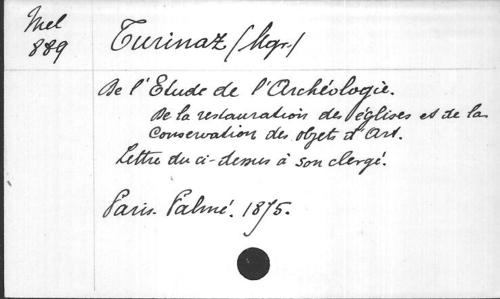 Mel
889
Turinaz (Mgr.)
De l'Etude de l'Archéologie.
De la restauration des églises et de la
Conservation des objets d'Art.
Lettre du ci-dessus à son clergé.
Paris. Palmé. 1875.